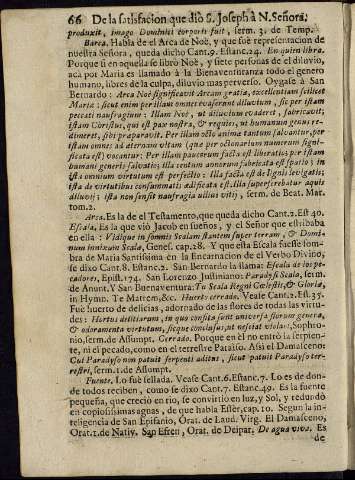 66 De la satisfacion que diò S. Joseph à N. Señora,
produxit, imago Dominici corporis fuit, serm. 3. de Temp.
Barca. Habla de el Arca de Noè, y que fuè representacion de
nuestra Señora, queda dicho Cant. 9. Estanc. 24. En quien libra.
Porque si en aquella se librò Noè, y siete personas de el diluvio,
acà por Maria es llamado à la Bienaventuranza todo el genero
humano, libres de la culpa, diluvio mas perverso. Oygase à San
Bernardo: Arca Noè significavit Arcam gratiæ, excellentiam scilicet
Mariæ: sicut enim per illam omnes evaserunt diluvium, sic per istam
peccati naufragium: Illam Noè, ut diluvium evaderet, fabricavit;
istam Christus, qui est pax nostra, & requies, ut humanum genus re-
dimeret, sibi præparavit. Per illam octo animæ tantum salvantur, per
istam omnes ad æternam vitam (quæ per octonarium numerum signi-
ficata est) vocantur: Per illam paucorum facta est liberatio; per istam
humani generis salvatio; illa centum annorum fabricata est spatio; in
ista omnium virtutum est perfectio: Illa facta est de lignis levigatis;
ista de virtutibus consummatis ædificata est. Illa superferebatur aquis
diluvij; ista non sensit naufragia ullius vitij, serm. de Beat. Mar.
tom. 2.
Arca. Es la de el Testamento, que queda dicho Cant. 2. Est 40.
Escala, Es la que viò Jacob en sueños, y el Señor que estribaba
en ella: Vidique in somnis Scalam stantem super terram, & Domi-
num innixum Scalæ, Genes. cap. 28. Y que esta Escala fuesse som-
bra de Maria Santissima en la Encarnacion de el Verbo Divino,
se dixo Cant. 8. Estanc. 2. San Bernardo la llama: Escala de los pe-
cadores, Epist. 174. San Lorenzo Justiniano: Paradysi Scala, serm.
de Anunt. Y San Buenaventura: Tu Scala Regni Cœlestis, & Gloriæ,
in Hymn. Te Matrem, &c. Huerto cerrado. Vease Cant. 2. Est. 35.
Fue huerto de delicias, adornado de las flores de todas las virtu-
des: Hortus delitiarum, in quo consita sunt universa florum genera,
& odoramenta virtutum, sicque conclusus, ut nesciat violari, Sophro-
nio, serm. de Assumpt. Cerrado. Porque en èl no entrò la serpien-
te, ni el pecado, como en el terrestre Paraiso. Assi el Damasceno:
Cui Paradyso non patuit serpenti aditus, sicut patuit Paradyso ter-
restri, serm. 1. de Assumpt.
Fuente, Lo fuè sellada. Vease Cant. 6. Estanc. 7. Lo es de don-
de todos reciben, como se dixo Cant. 7. Estanc. 49. Es la fuente
pequeña, que creciò en rio, se convirtiò en luz, y Sol, y redundò
en copiosissimas aguas, de que habla Ester, cap. 10. Segun la in-
teligencia de San Epifanio, Orat. de Laud. Virg. El Damasceno,
Orat. 1. de Nativ. San Efren, Orat. de Deipar. De agua viva. Es
de